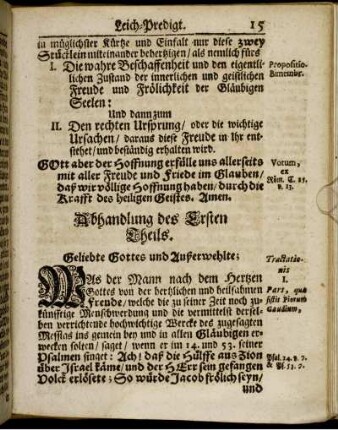 Leich-Predigt. 15
in müglichster Kürtze und Einfalt nur diese zwey
Stücklein miteinander behertzigen / als nemlich fürs
I. Die wahre Beschaffenheit und den eigent-
lichen Zustand der innerlichen und geistlichen
Freude und Frölichkeit der Gläubigen
Seelen:
Propositio
Bimembr.
Und dann zum
II. Den rechten Ursprung / oder die wichtige
Ursachen / daraus diese Freude in Ihr ent-
stehet / und beständig erhalten wird.
GOtt aber der Hoffnung erfülle uns allerseits
mit aller Freude und Friede im Glauben /
daß wir völlige Hoffnung haben / durch die
Krafft des heiligen Geistes. Amen.
Votum,
ex
Röm. C. 15.
v. 13.
Abhandlung des Ersten
Theils.
Geliebte Gottes und Außerwehlte;
WAs der Mann nach dem Hertzen
Gottes von der hertzlichen und heilsahmen
Freude / welche die zu seiner Zeit noch zu-
künfftige Menschwerdung und die vermittelst dersel-
ben verrichtende hochwichtige Wercke des zugesagten
Messias ins gemein bey und in allen Gläubigen er-
wecken solten / saget / wenn er im 14. und 53. seiner
Psalmen singet: Ach! daß die Hülffe aus Zion
über Israel käme / und der HErr sein gefangen
Volck erlösete; So würde Jacob frölich seyn /
und
Tractatio-
nis
I.
Pars, quæ
sistit Piorum
Gaudium,
Psal. 14. v. 7.
& Ps. 53. 7.